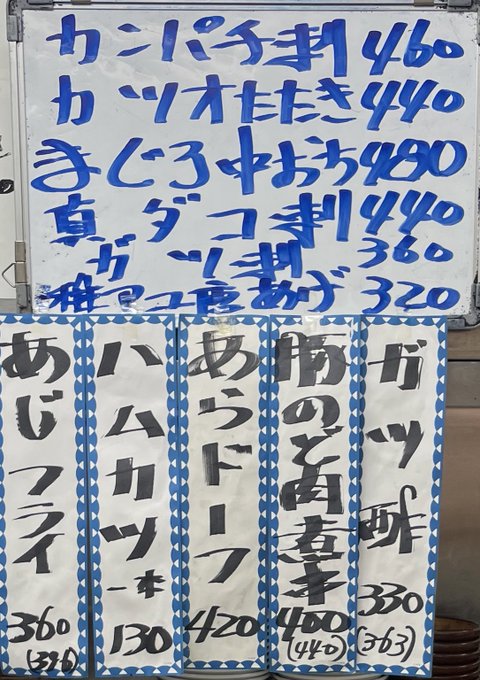 カンパチ刺 460
カツオたたき 440
まぐろ中おち 480
真ダコ刺 440
ガツ刺 360
稚アユ唐あげ 320
ガツ酢 330 (363)
豚のど肉煮 400 (440)
あらドーフ 420
ハムカツ一本 130
あじフライ 360 (396)